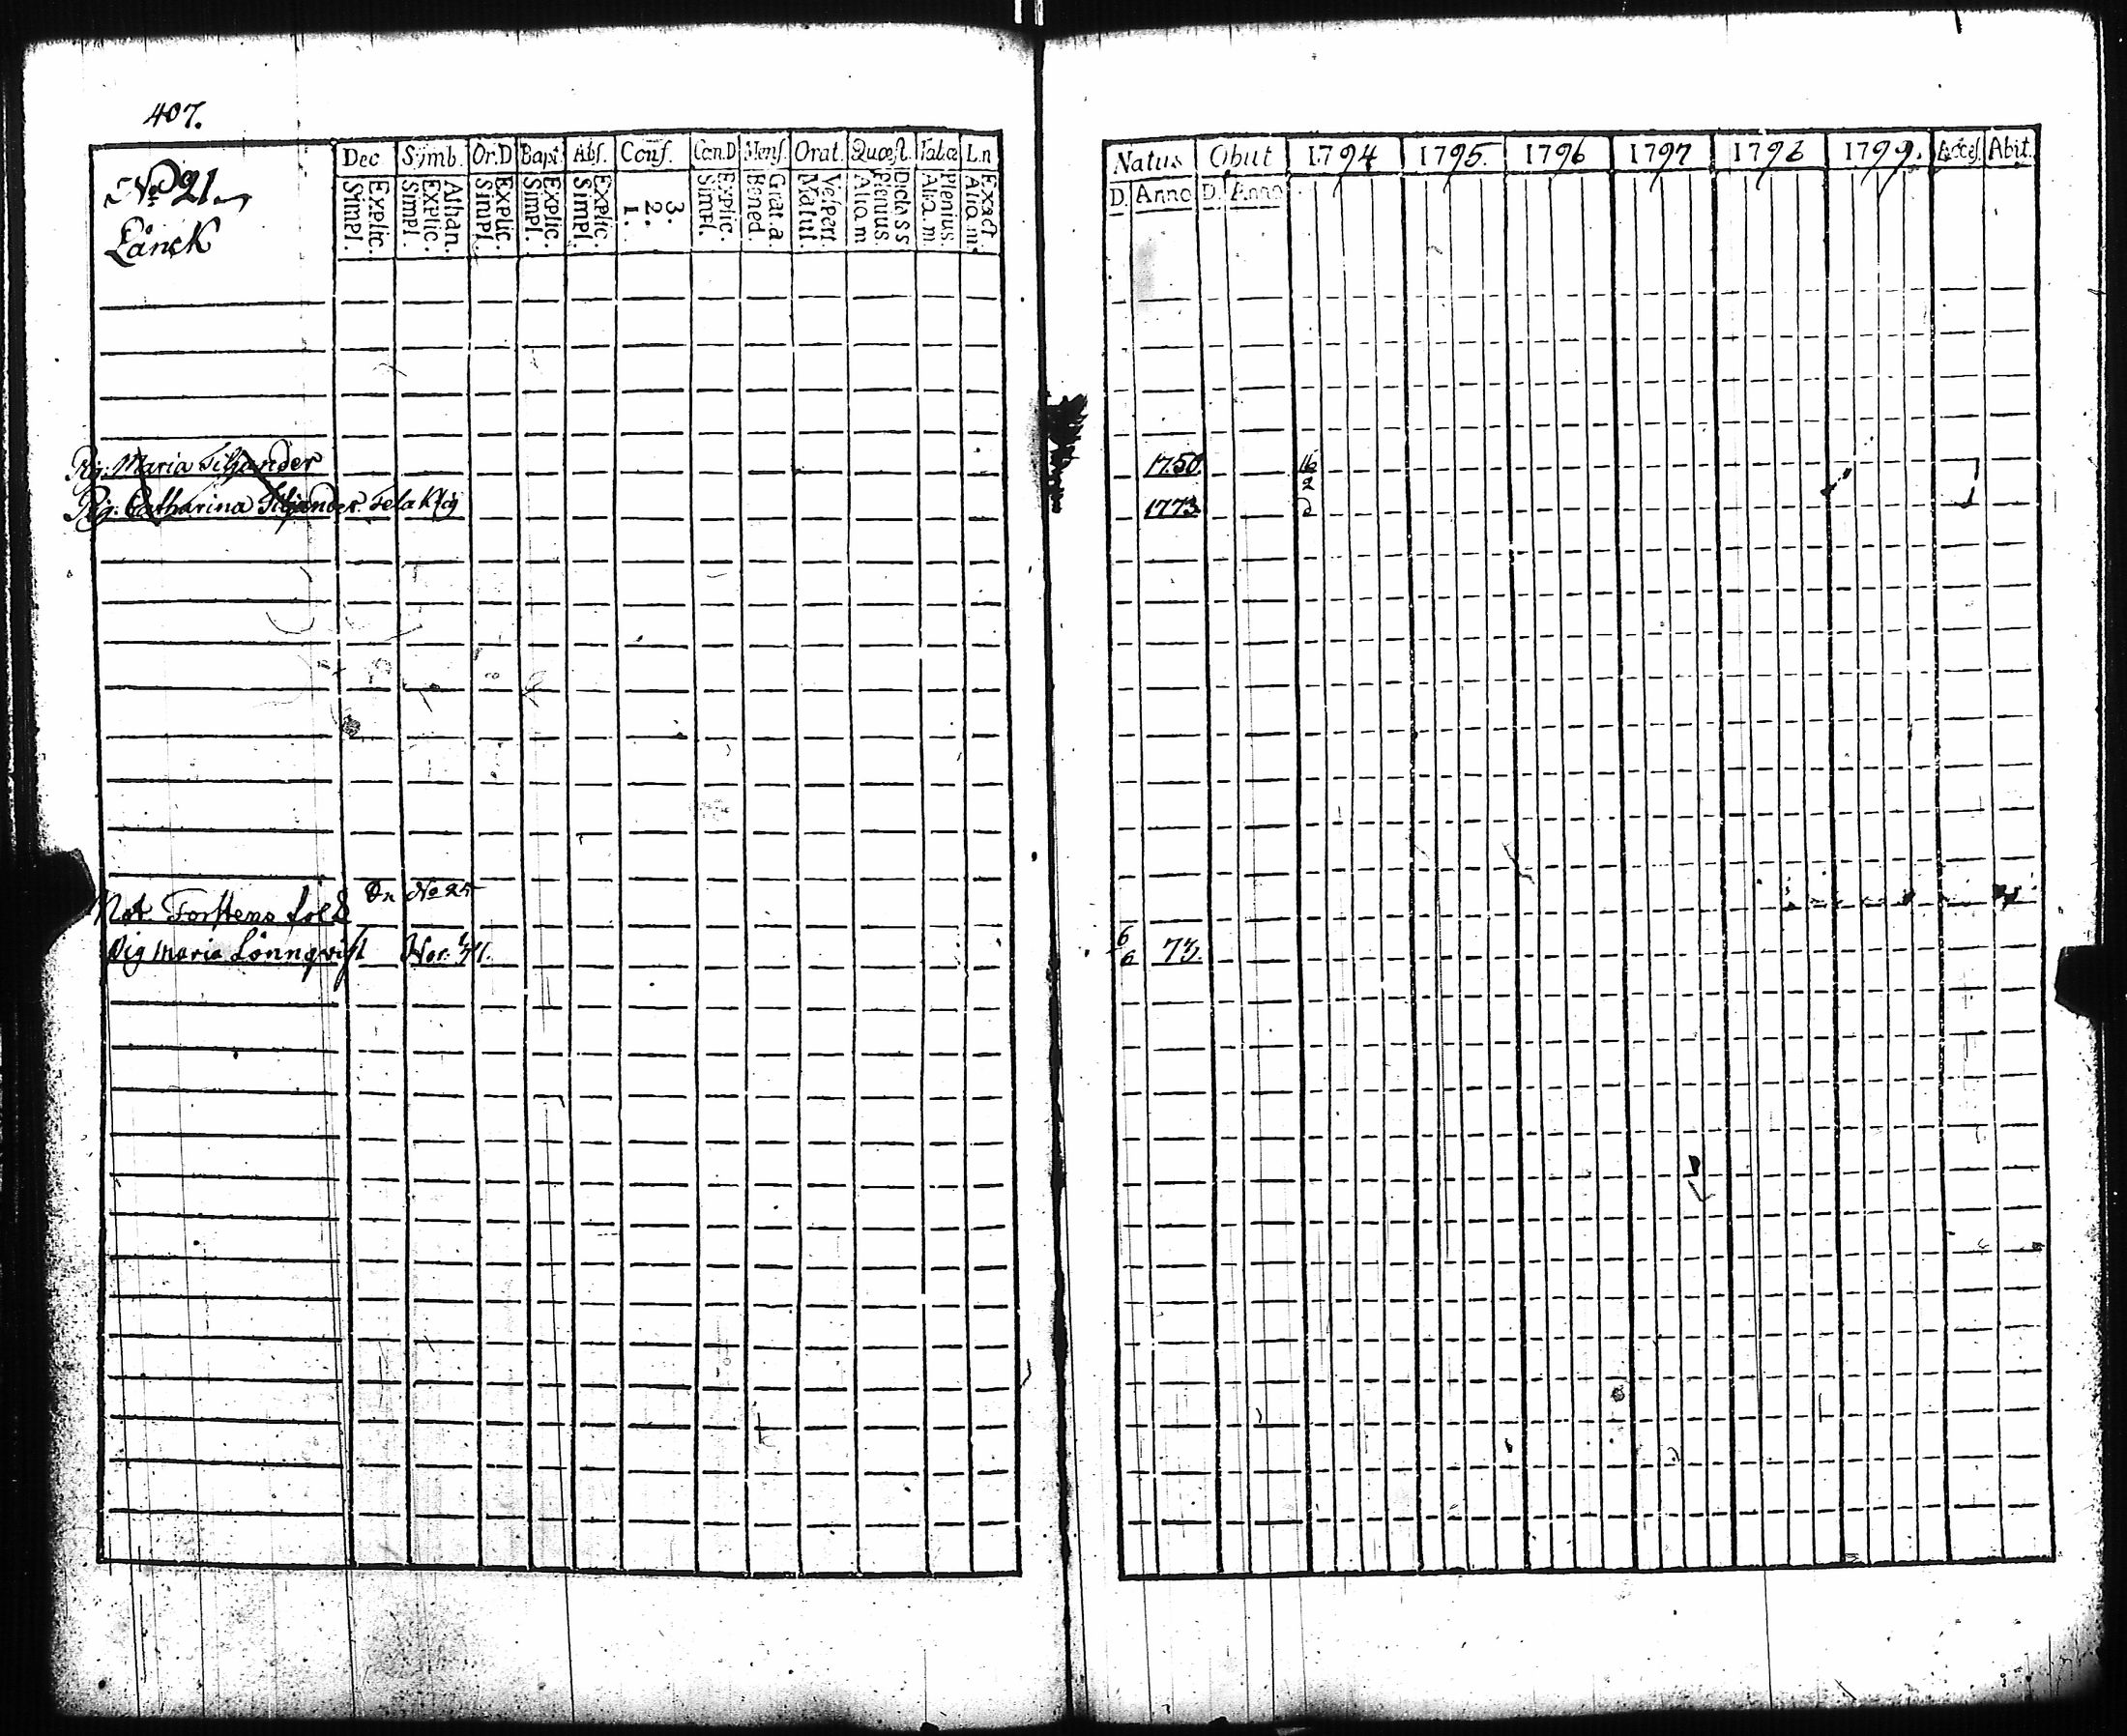 407.
No 21.
Lånck
Dec Symb. Or.D Bapt. Abs. Conf. Can.D Mens. Orat. Quæst. Tabæ L.n
Explic. Simpl. Athan. Explic. Simpl. Explic. Simpl. Explic. Simpl. Explic. Simpl. 3. 2. 1. Explic. Simpl. Grat. a. Bened. Vespert. Matut. Dicta SS Plenius. Aliq. m Plenius. Aliq. m. Exact. Aliq. m.
Natus Obiit 1794 1795. 1796 1797 1798 1799. Acces. Abit.
D. Anno D. Anno
Pig. Maria Tiljander 1750 16 2
Pig. Catharina Tiljander 1773
On No 25
Not. Forstens folk
Pig Maria Lönnqvist 6 6 73.